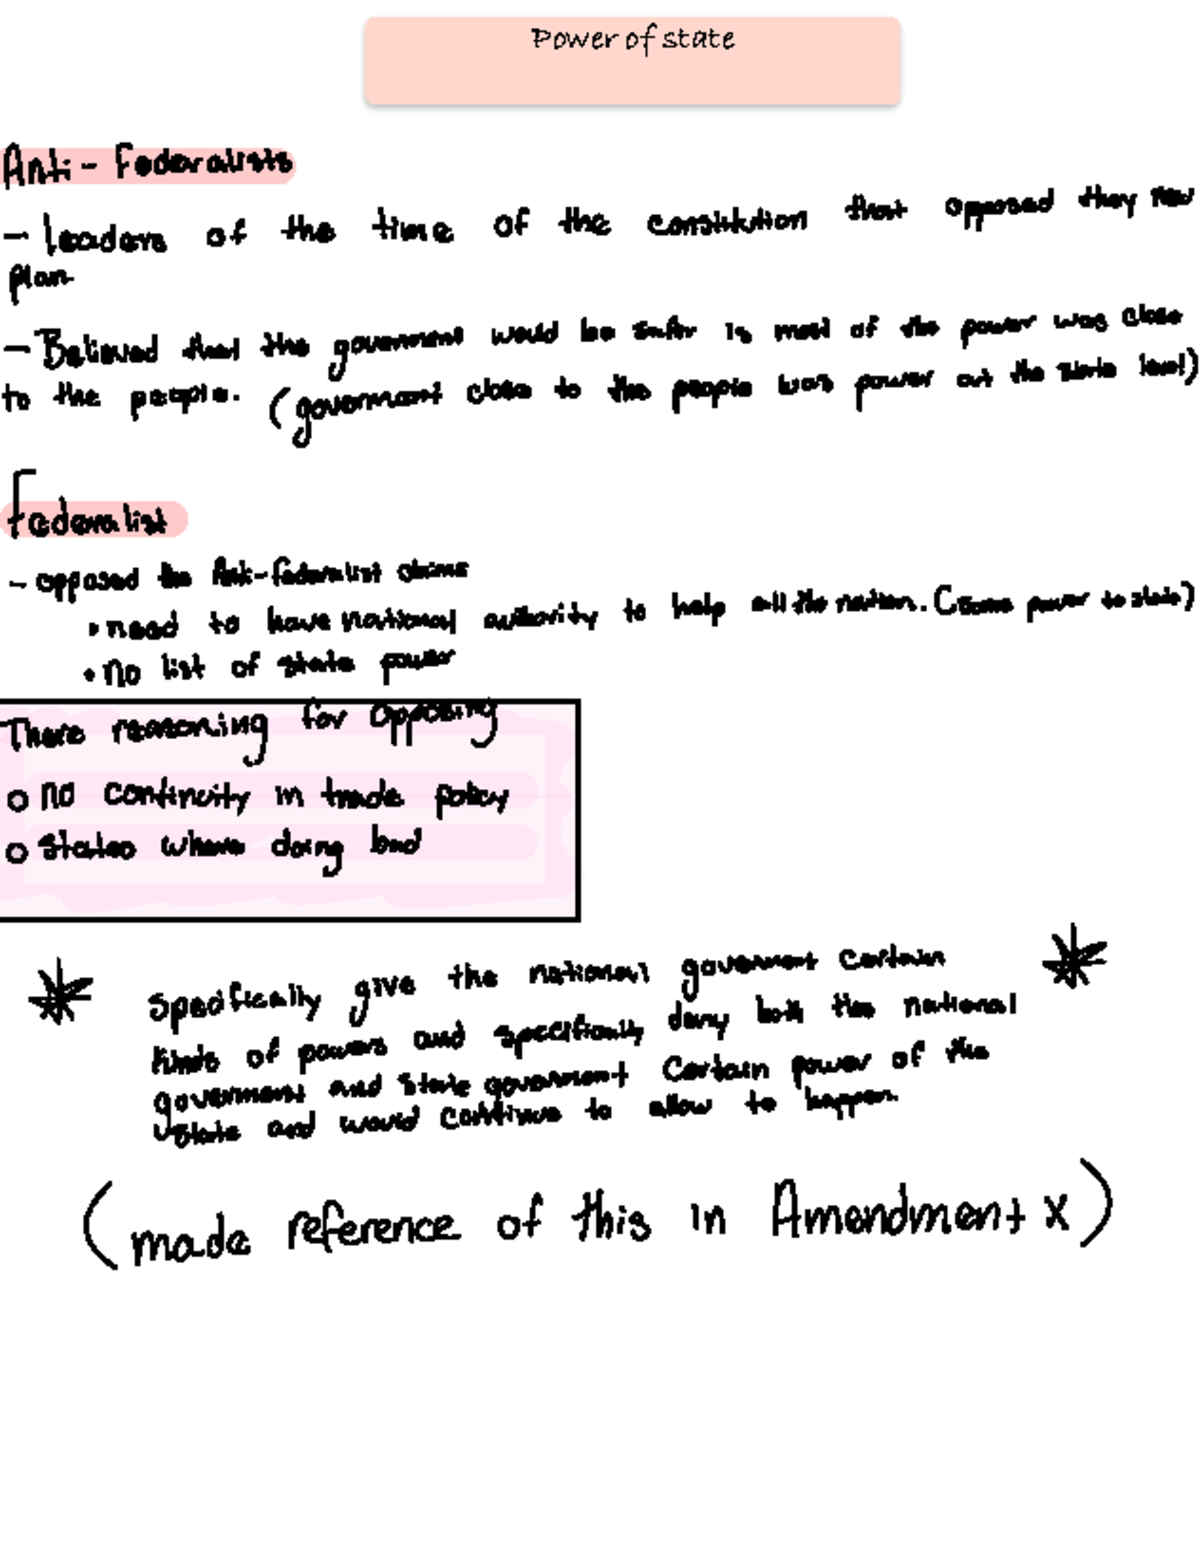 Power of state
Anti - Federalists
- leaders of the time of the constitution that opposed they new
plan
- Believed that the goverment would be safer is most of the power was close
to the people. (goverment close to the people was power at the state level)
Federalist
- opposed the Anti-federalist claims
• need to have national authority to help all the nation. (some power to state)
• no list of state power
There reasoning for opposing
o no continuity in trade policy
o states where doing bad
* Specifically give the national goverment certain *
kinds of powers and specifically deny both the national
goverment and state goverment certain power of the
state and would continue to allow to happen.
(made reference of this in Amendment X)